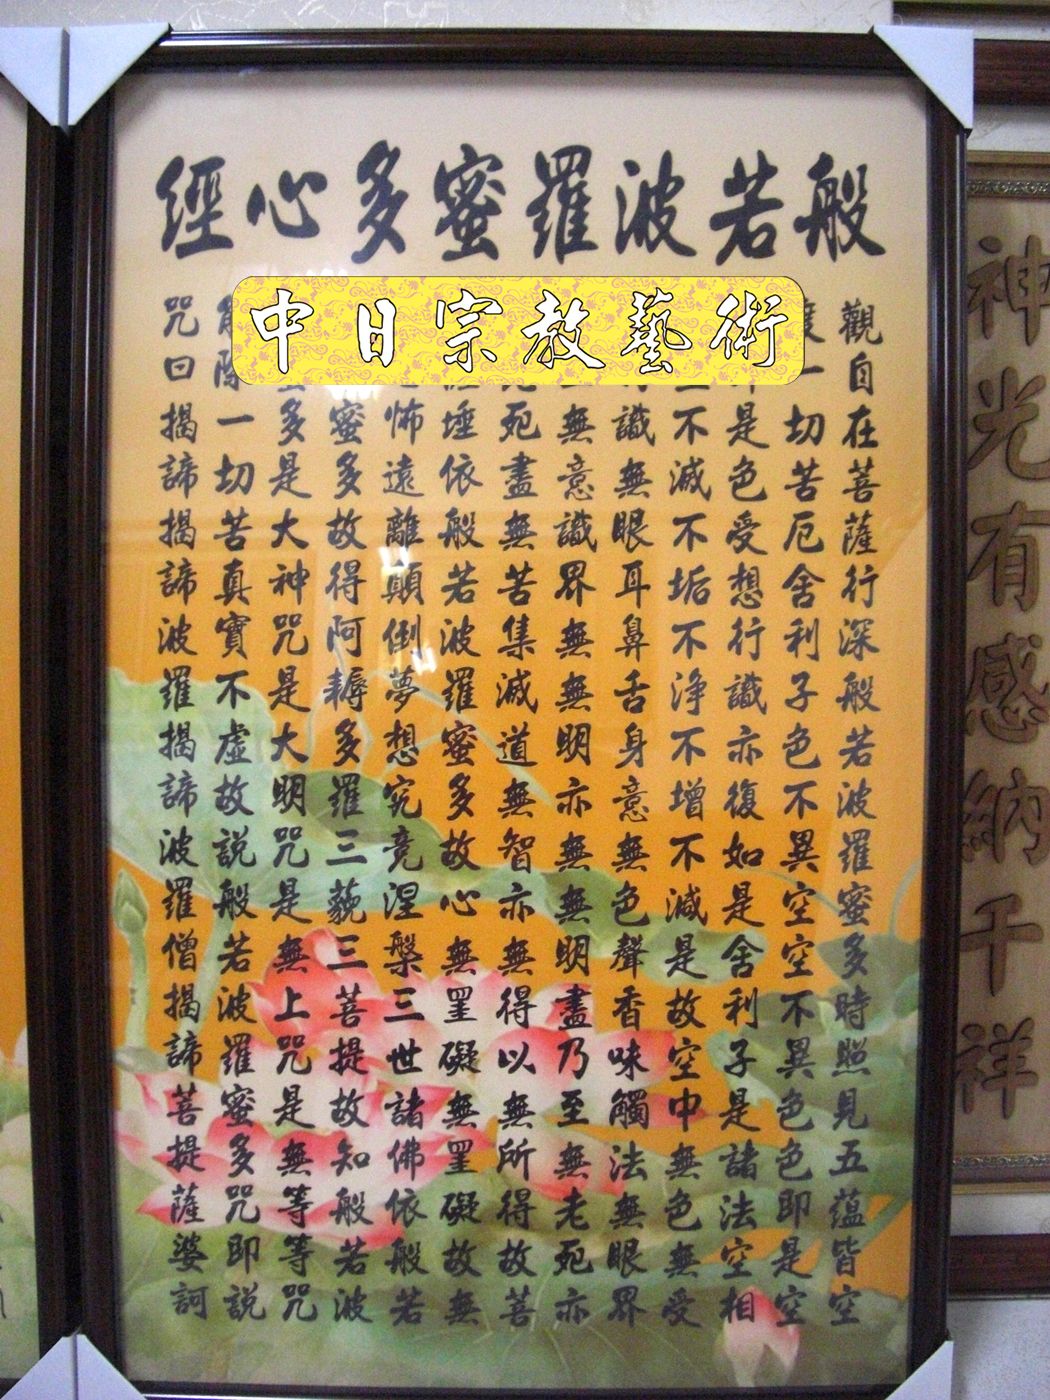 般若波羅蜜多心經
中日宗教藝術
觀自在菩薩行深般若波羅蜜多時照見五蘊皆空
一切苦厄舍利子色不異空空不異色色即是空
是色受想行識亦復如是舍利子是諸法空相
不滅不垢不浄不增不減是故空中無色無受
識無眼耳鼻舌身意無色聲香味觸法無眼界
無意識界無無明亦無無明盡乃至無老死亦
死盡無苦集滅道無智亦無得以無所得故菩
埵依般若波羅蜜多故心無罣礙無罣礙故無
怖遠離顛倒夢想究竟涅槃三世諸佛依般若
蜜多故得阿耨多羅三藐三菩提故知般若波
多是大神咒是大明咒是無上咒是無等等咒
除一切苦真實不虛故說般若波羅蜜多咒即說
咒曰揭諦揭諦波羅揭諦波羅僧揭諦菩提薩婆訶
神光有感納千祥